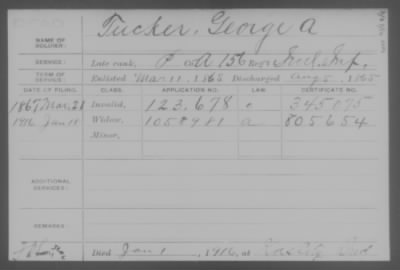 Tucker, George A
NAME OF SOLDIER:
SERVICE: Late rank, P Co A 156 Ind. Inf.
TERM OF SERVICE: Enlisted Mar 11, 1865 Discharged Aug 5, 1865
DATE OF FILING. CLASS. APPLICATION NO. LAW. CERTIFICATE NO.
1867 Mar. 21 Invalid, 123,678 345075
1916 Jan 18 Widow, 1058981 a 805654
Minor,
ADDITIONAL SERVICES:
REMARKS:
Died Jan 1, 1916, at Ind